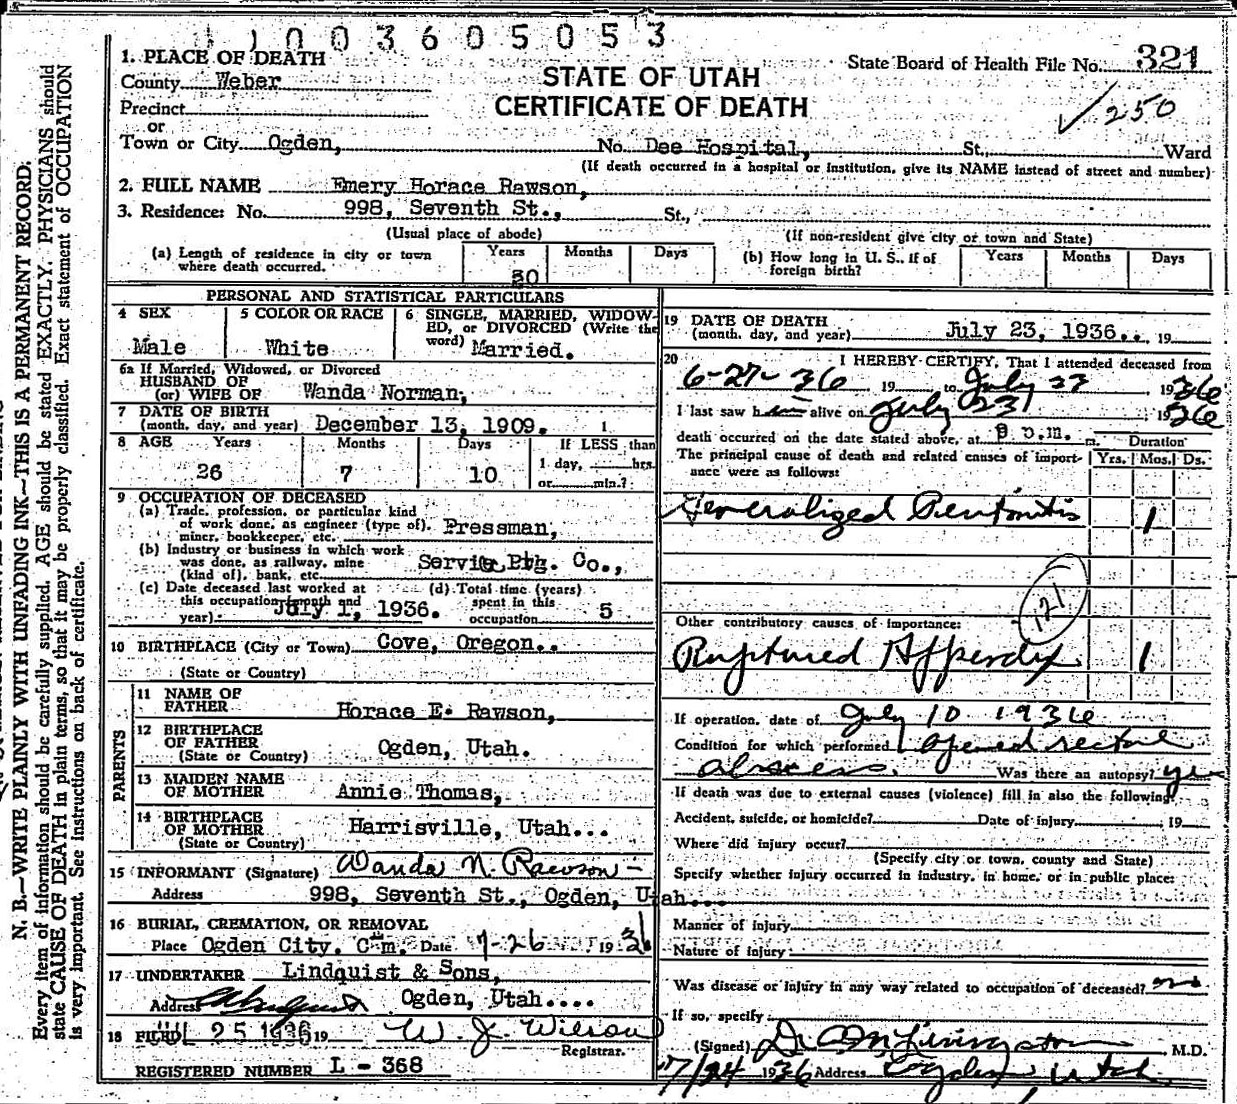 11003605053
1. PLACE OF DEATH
State Board of Health File No. 321
County Weber
STATE OF UTAH
Precinct
CERTIFICATE OF DEATH
✓ 250
or
Town or City Ogden, No. Dee Hospital, St., Ward
(If death occurred in a hospital or institution, give its NAME instead of street and number)
2. FULL NAME Emery Horace Rawson,
3. Residence: No. 998, Seventh St., St.,
(Usual place of abode) (If non-resident give city or town and State)
(a) Length of residence in city or town where death occurred. Years Months Days
(b) How long in U. S., if of foreign birth? Years Months Days
PERSONAL AND STATISTICAL PARTICULARS
4 SEX
Male
5 COLOR OR RACE
White
6 SINGLE, MARRIED, WIDOWED, or DIVORCED (Write the word) Married.
6a If Married, Widowed, or Divorced
HUSBAND OF
(or) WIFE OF Wanda Norman,
7 DATE OF BIRTH
(month, day, and year) December 13, 1909.
8 AGE Years Months Days If LESS than
26 7 10 1 day, hrs.
or min.?
9 OCCUPATION OF DECEASED
(a) Trade, profession, or particular kind
of work done, as engineer (type of), Pressman,
miner, bookkeeper, etc.
(b) Industry or business in which work
was done, as railway, mine Service Ptg. Co.,
(kind of), bank, etc.
(c) Date deceased last worked at
this occupation (month and
year) July 1, 1936.
(d) Total time (years)
spent in this
occupation 5
10 BIRTHPLACE (City or Town) Cove, Oregon..
(State or Country)
PARENTS
11 NAME OF
FATHER Horace E. Rawson,
12 BIRTHPLACE
OF FATHER Ogden, Utah.
(State or Country)
13 MAIDEN NAME
OF MOTHER Annie Thomas,
14 BIRTHPLACE
OF MOTHER Harrisville, Utah...
(State or Country)
15 INFORMANT (Signature) Wanda N. Rawson
Address 998, Seventh St., Ogden, Utah...
16 BURIAL, CREMATION, OR REMOVAL
Place Ogden City, Cem. Date 7-26 1936
17 UNDERTAKER Lindquist & Sons,
Address Ogden, Utah....
18 FILED JUL 25 1936 19 W. J. Wilson
Registrar.
REGISTERED NUMBER L - 368
19 DATE OF DEATH
(month, day, and year) July 23, 1936.. , 19
20 I HEREBY CERTIFY, That I attended deceased from
6-27-36 19 to July 23 1936
I last saw him alive on July 23 1936
death occurred on the date stated above, at p.m. m.
The principal cause of death and related causes of importance were as follows:
Duration
Yrs. Mos. Ds.
Generalized Peritonitis 1
121
Other contributory causes of importance:
Ruptured Appendix 1
If operation, date of July 10 1936
Condition for which performed opened rectal
abscess. Was there an autopsy? yes
If death was due to external causes (violence) fill in also the following:
Accident, suicide, or homicide? Date of injury 19
Where did injury occur?
(Specify city or town, county and State)
Specify whether injury occurred in industry, in home, or in public place:
Manner of injury
Nature of injury
Was disease or injury in any way related to occupation of deceased? no
If so, specify
(Signed) Dr Livingston , M.D.
7/24 1936 Address Ogden, Utah
N. B.—WRITE PLAINLY WITH UNFADING INK—THIS IS A PERMANENT RECORD.
Every item of information should be carefully supplied. AGE should be stated EXACTLY. PHYSICIANS should
state CAUSE OF DEATH in plain terms, so that it may be properly classified. Exact statement of OCCUPATION
is very important. See instructions on back of certificate.